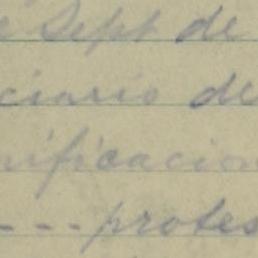 e Sept de
ciario de
nificacion
- - - protes